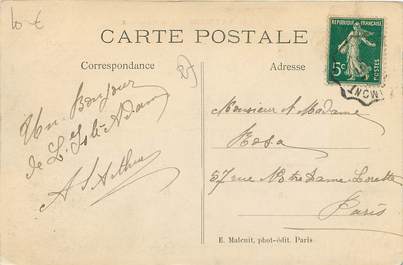 10 €
CARTE POSTALE
REPUBLIQUE FRANÇAISE
5c
POSTES
Correspondance
27
Adresse
Un Bonjour
de L'Isle-Adam
Monsieur et Madame
Rosa
57 rue Notre Dame Lorette
Paris
E. Malcuit, phot-édit. Paris